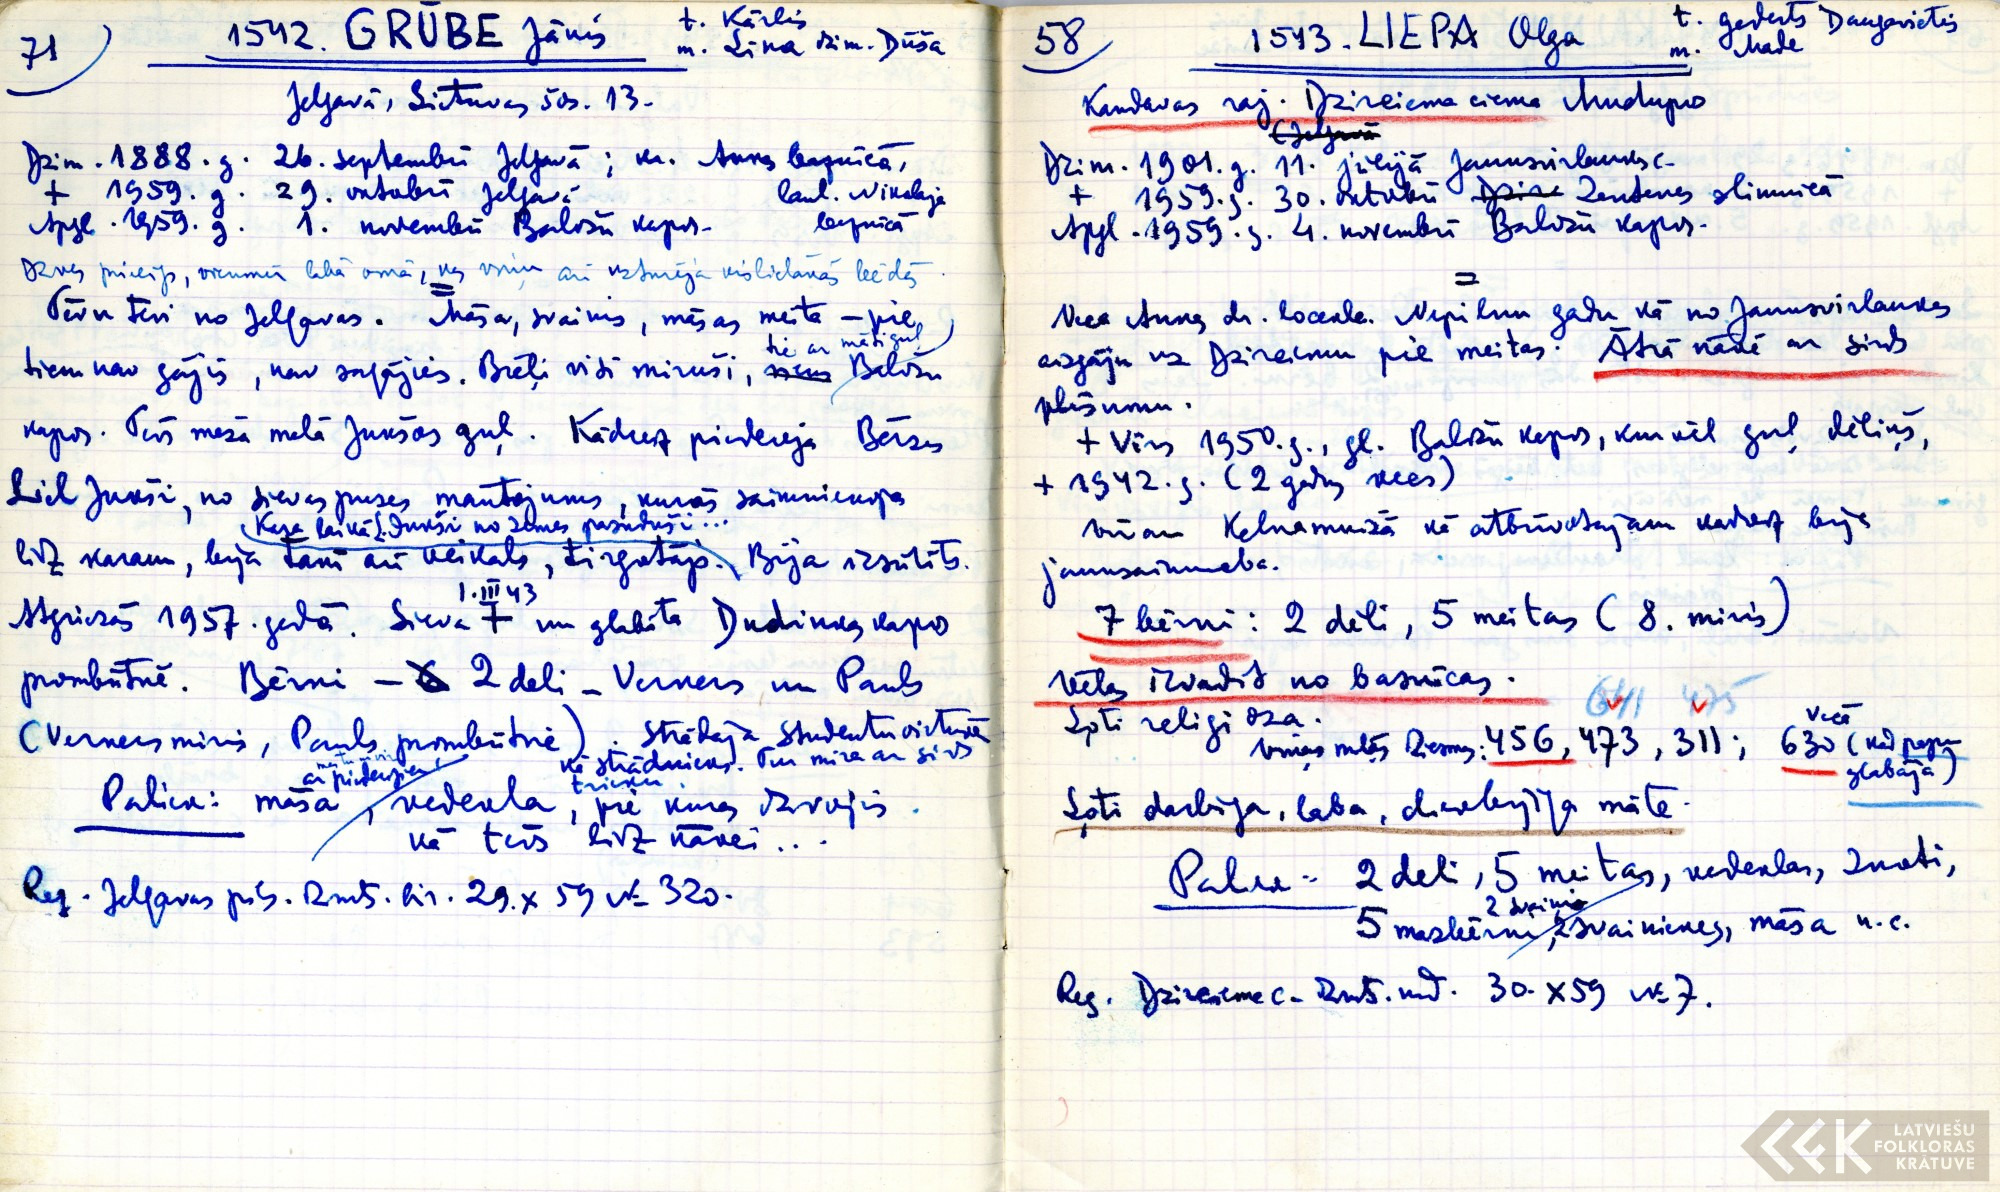 71) 1542. GRŪBE Jānis t. Kārlis
m. Līna dzim. Dūša
Jelgavā, Lietuvas šos. 13.
Dzim. 1888. g. 26. septembrī Jelgavā; kr. Annas baznīcā,
+ 1959. g. 29. oktobrī Jelgavā laul. Nikolaja
Apgl. 1959. g. 1. novembrī Baložu kapos. baznīcā
Dzīves princips, vienmēr labā omā, kas viņu arī uzturēja
=
Tēvu tēvi no Jelgavas. Māsa, svainis, māsas meita – pie
tie ar māti guļ
tiem nav gājis, nav sagājies. Brāļi visi miruši, Baložu
kapos. Tēvs meža malā Jukšās guļ. Kādreiz piederēja Bērzes
Liel Jukši, no sievas puses mantojums, kurās saimniekoja
Kara laikā L. Jukši no zemes pazuduši...
līdz karam, bija tani arī veikals, tirgotājs. Bija izsūtīts.
1. III 43
Atgriezās 1957. gadā. Sieva + un glabāta Dudinkas kapo
prombūtnē. Bērni – 2 dēli – Verners un Pauls
(Verners miris, Pauls prombūtnē). Strādāja Studentu virtuvē
kā strādnieks. Tur mira ar sirds
trieku.
ar piederīgiem
Paliek: māsa, vedekla, pie kuras dzīvojis
kā tēvs līdz nāvei...
Reg. Jelgavas pils. Dzmts. bir. 29. X 59 № 320.
58) 1543. LIEPA Olga t. Ģederts Daugavietis
m. Made
Kandavas raj. Dzirciema ciema
(Jelgavā
Dzim. 1901. g. 11. jūlijā Jaunsvirlaukas c.
+ 1959. g. 30. oktobrī Dzirc Zentenes slimnīcā
Apgl. 1959. g. 4. novembrī Baložu kapos.
=
Veca Annas dr. locekle. Nepilnu gadu kā no Jaunsvirlaukas
aizgāju uz Dzirciemu pie meitas. Ātrā nāvē ar sirds
plīsumu.
+ Vīrs 1950. g., gl. Baložu kapos, kur vēl guļ dēliņš,
+ 1942. g. (2 gadus vecs)
viņam Kalnamuižā kā atbrīvotājam kādreiz bija
jaunsaimnieba.
7 bērni: 2 dēli, 5 meitas (8. miris)
Vēlas izvadīt no baznīcas.
641 475
Ļoti reliģioza.
viņas mīļās dziesmas: 456, 473, 311; 630 (kad
vecā
glabāja)
Ļoti darbīga, laba, dievbijīga māte.
Paliek – 2 dēli, 5 meitas, vedeklas, znoti,
2 svaiņi
5 mazbērni, 2 svainienes, māsa u.c.
Reg. Dzirciema c. Dzmts. nod. 30. X 59 № 7.
LATVIEŠU
FOLKLORAS
KRĀTUVE